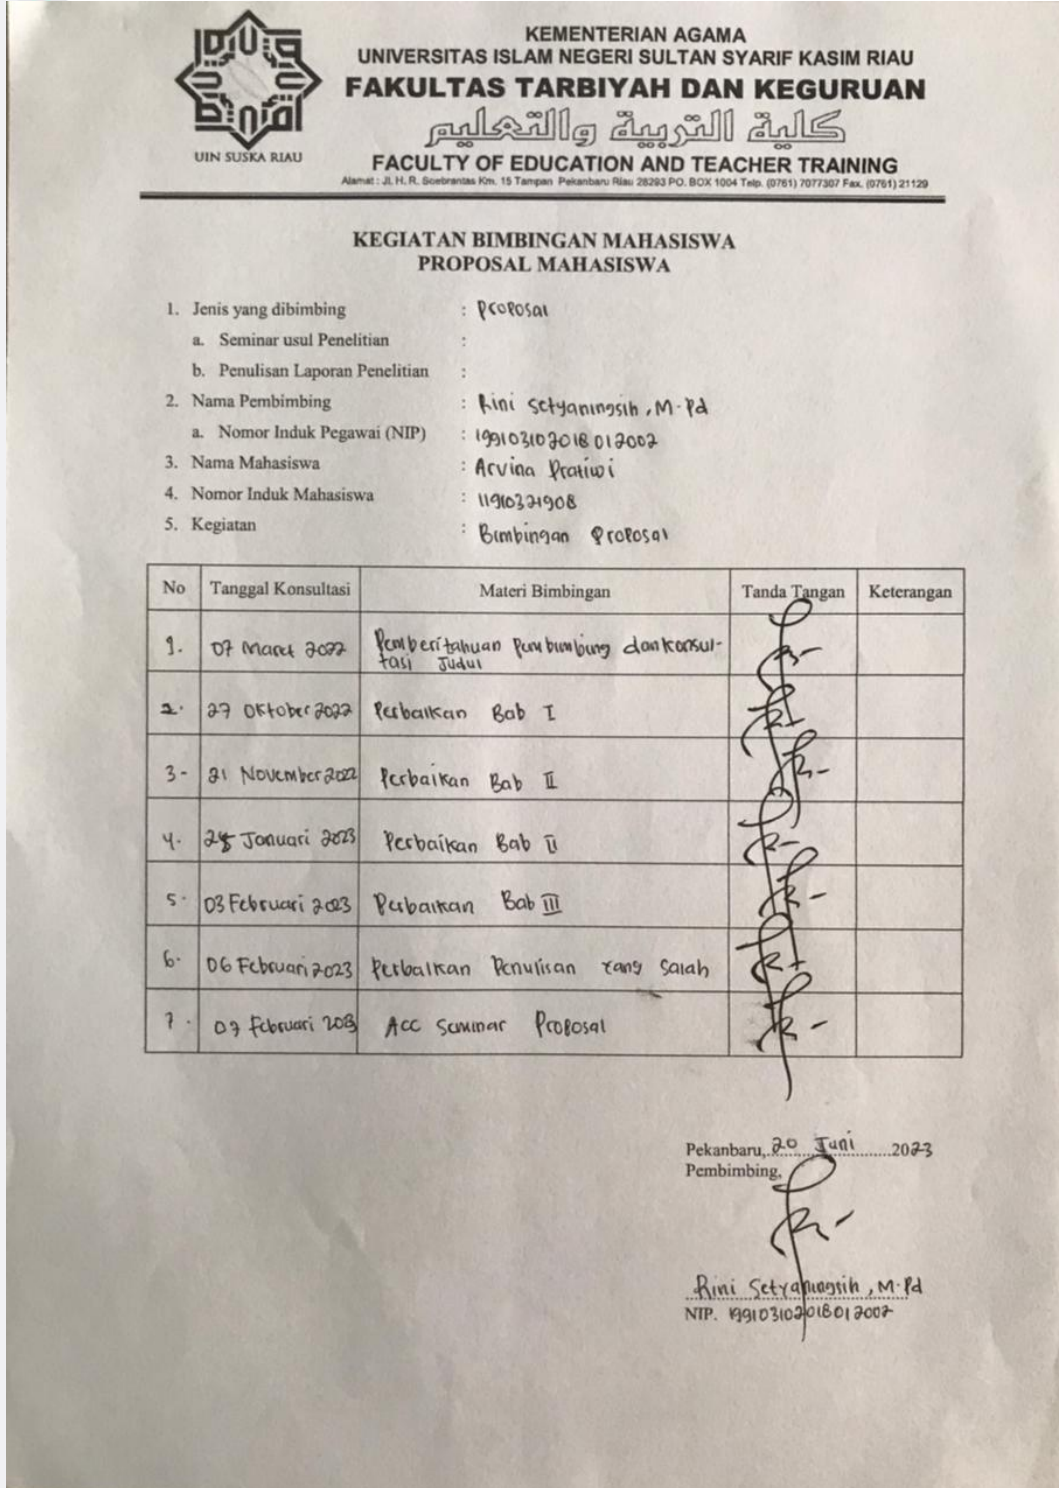 UIN SUSKA RIAU
KEMENTERIAN AGAMA
UNIVERSITAS ISLAM NEGERI SULTAN SYARIF KASIM RIAU
FAKULTAS TARBIYAH DAN KEGURUAN
كلية التربية والتعليم
FACULTY OF EDUCATION AND TEACHER TRAINING
Alamat : Jl. H. R. Soebrantas Km. 15 Tampan Pekanbaru Riau 28293 PO. BOX 1004 Telp. (0761) 7077307 Fax. (0761) 21129
KEGIATAN BIMBINGAN MAHASISWA
PROPOSAL MAHASISWA
1. Jenis yang dibimbing : Proposal
a. Seminar usul Penelitian :
b. Penulisan Laporan Penelitian :
2. Nama Pembimbing : Rini Setyaningsih, M.Pd
a. Nomor Induk Pegawai (NIP) : 199103102018012002
3. Nama Mahasiswa : Arvina Pratiwi
4. Nomor Induk Mahasiswa : 11910321908
5. Kegiatan : Bimbingan Proposal
No Tanggal Konsultasi Materi Bimbingan Tanda Tangan Keterangan
1. 07 Maret 2022 Pemberitahuan Pembimbing dan Konsul-
tasi Judul
2. 27 Oktober 2022 Perbaikan Bab I
3- 21 November 2022 Perbaikan Bab II
4. Januari 2023 Perbaikan Bab II
5. 03 Februari 2023 Perbaikan Bab III
6. 06 Februari 2023 Perbaikan Penulisan Yang Salah
7. 07 Februari 2023 Acc Seminar Proposal
Pekanbaru, 20 Juni 2023
Pembimbing,
Rini Setyaningsih, M.Pd
NIP. 199103102018012002